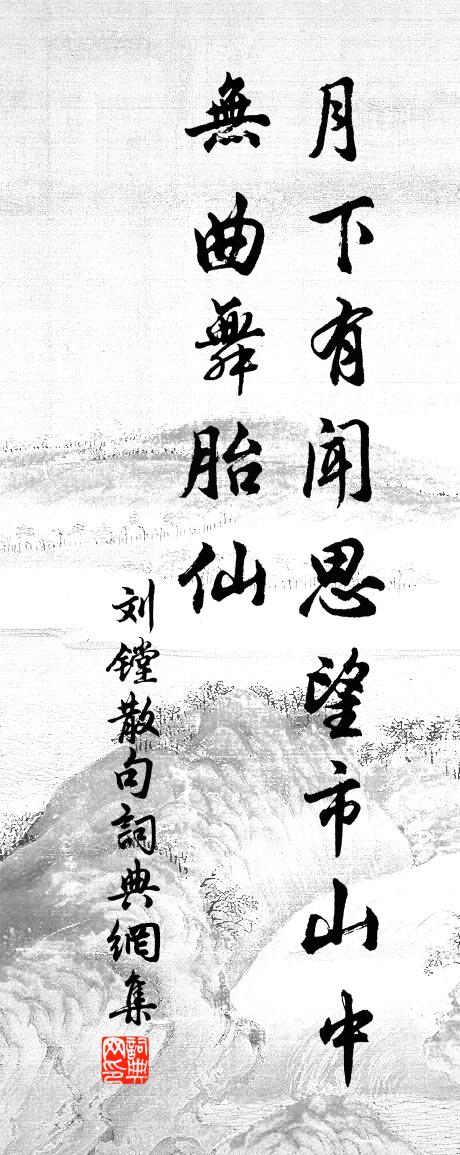 月下有闻思望市山中
無曲舞胎仙
刘镗散句詞典網集
詞典网印